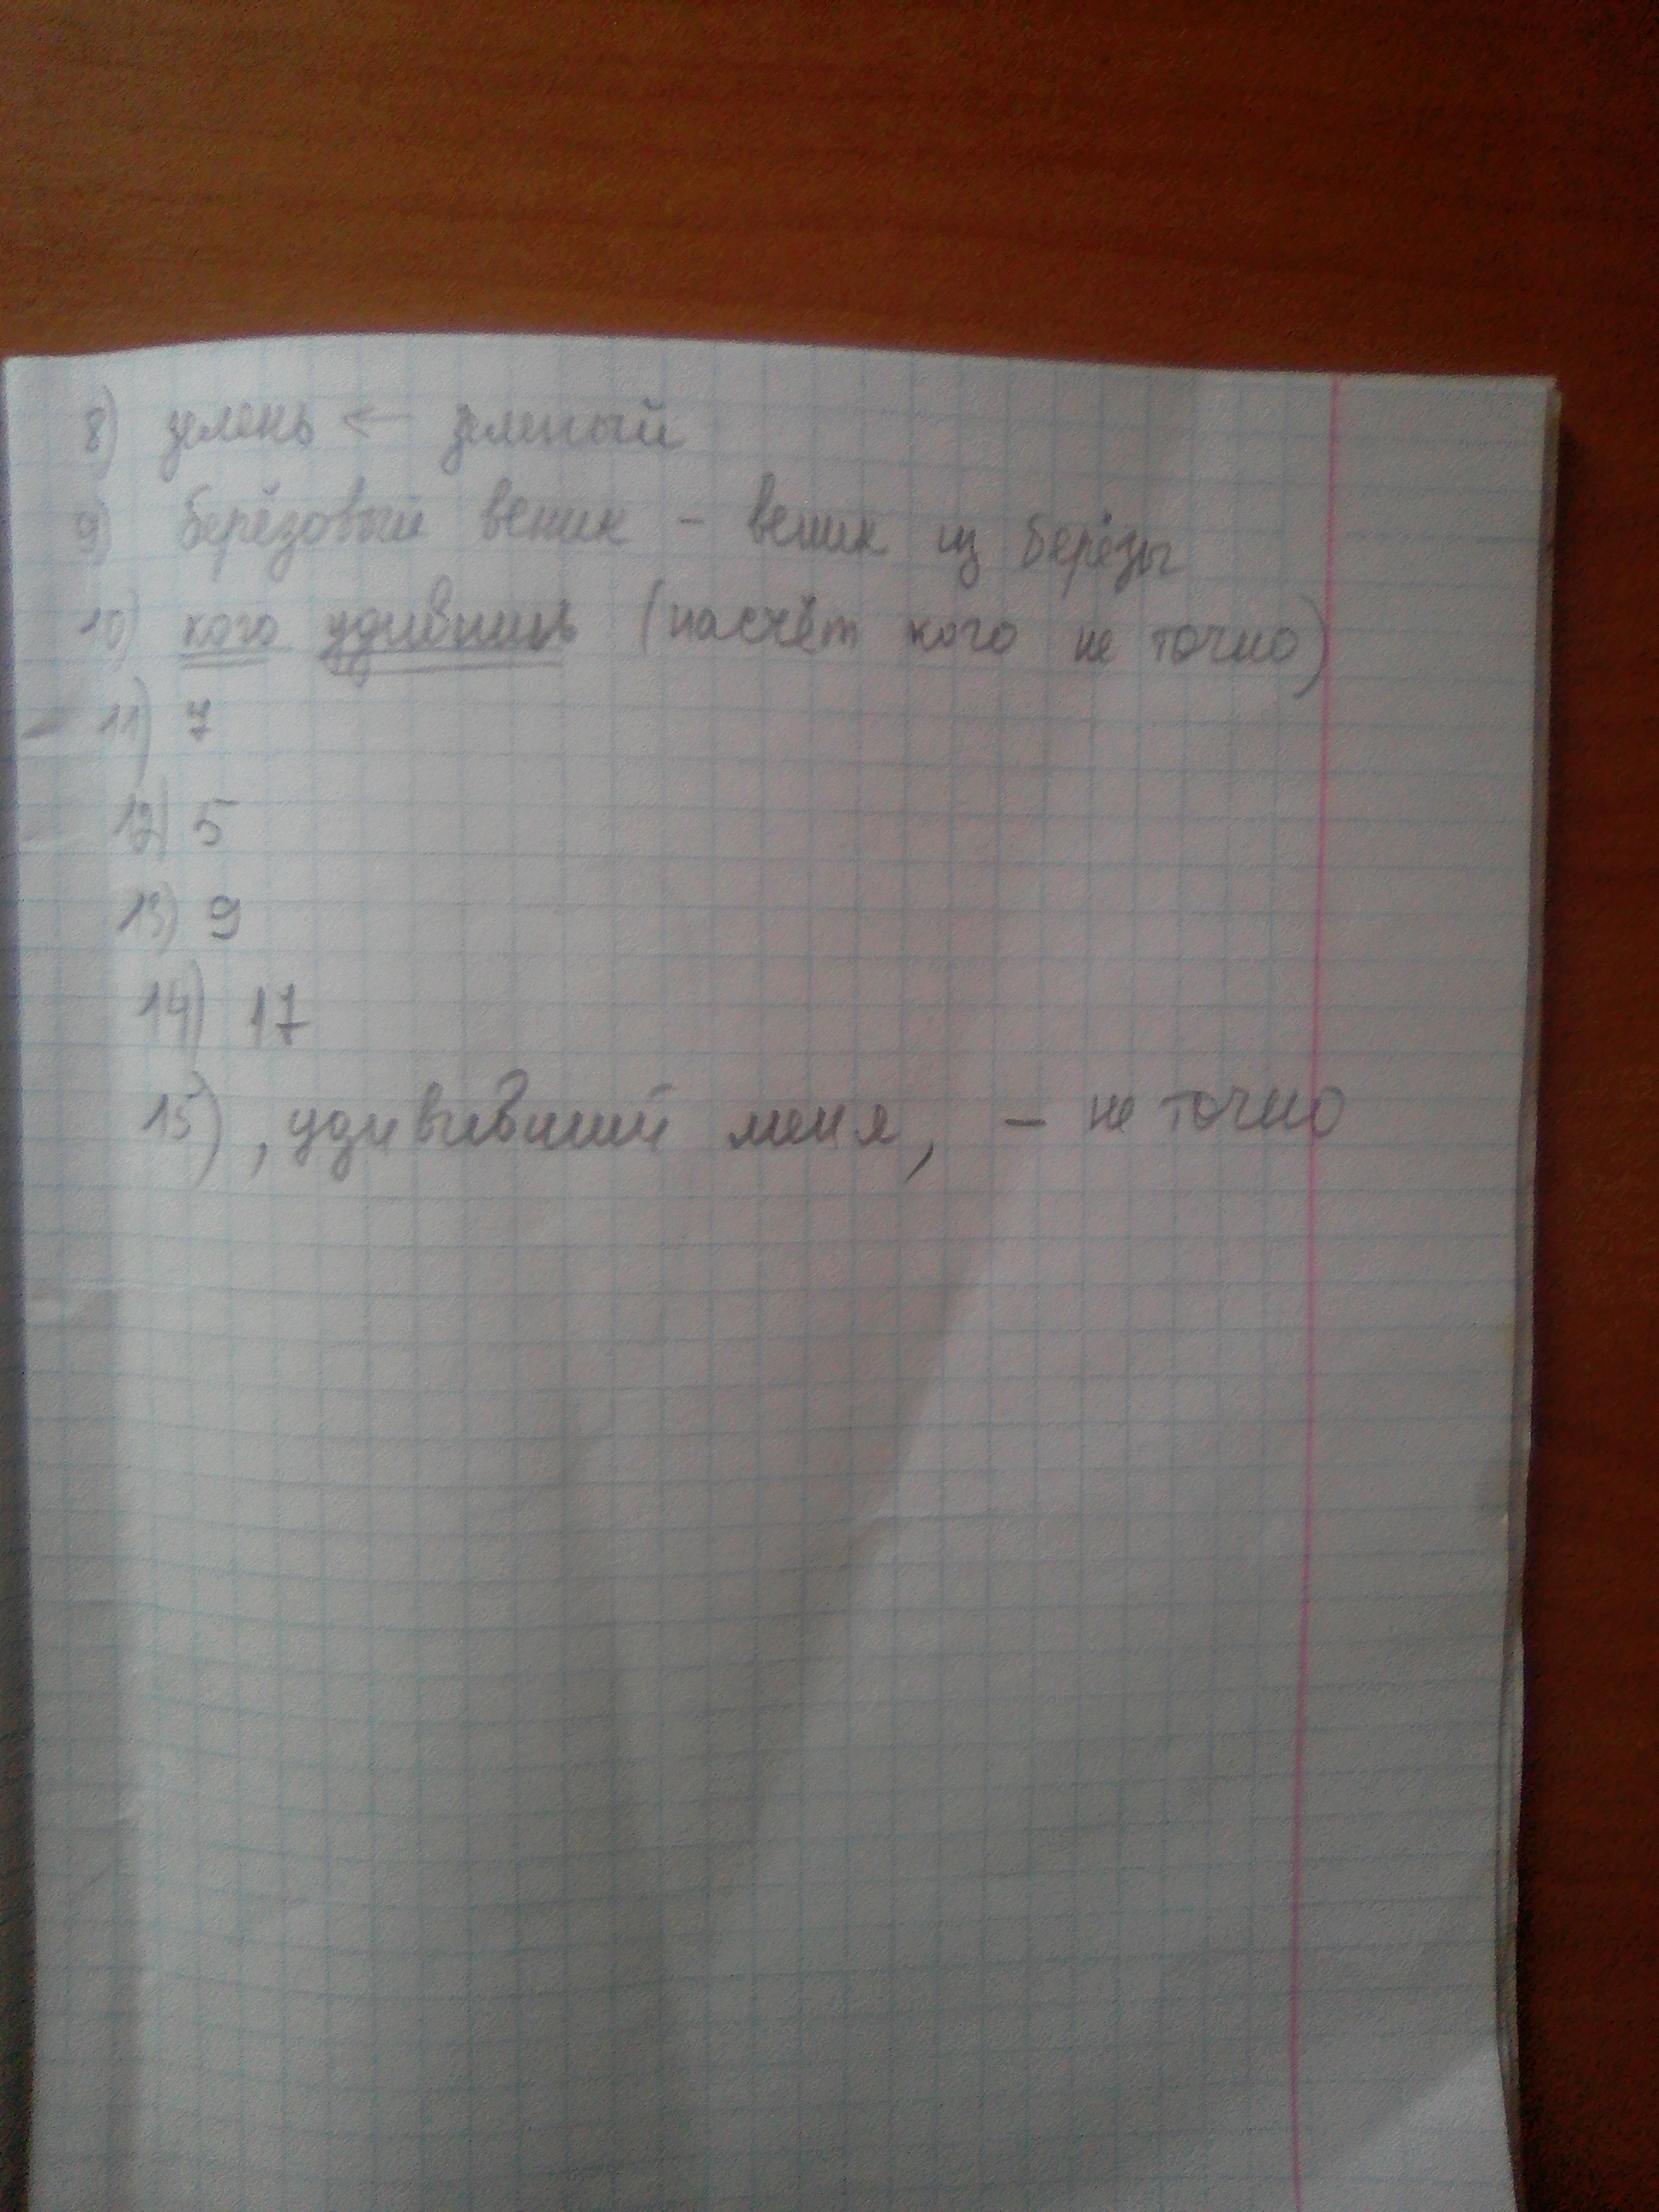 8) зелень ← зеленый
9) берёзовый веник - веник из берёзы
10) кого удивишь (насчёт кого не точно)
11) 7
12) 5
13) 9
14) 17
15) , удививший меня, - не точно